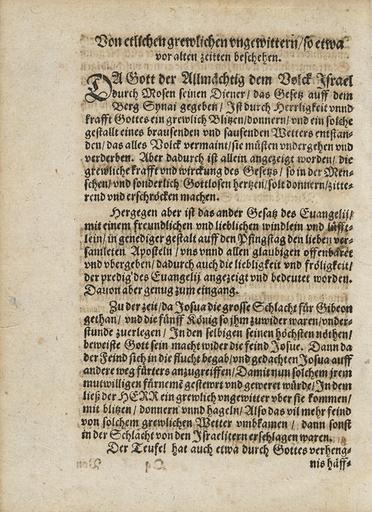 Von etlichen grewlichen vngewittern / so etwa
vor alten zeitten beschehen.
DA Gott der Allmächtig dem Volck Israel
durch Mosen seinen Diener / das Gesetz auff dem
Berg Synai gegeben / Ist durch Herrligkeit vnnd
krafft Gottes ein grewlich Blitzen / donnern / vnd ein solche
gestalt eines brausenden vnd sausenden Wetters entstan-
den / das alles Volck vermaint / sie müsten vndergehen vnd
verderben. Aber dadurch ist allein angezeigt worden / die
grewliche krafft vnd wirckung des Gesetzs / so in der Men-
schen / vnd sonderlich Gottlosen hertzen / solt donnern / zitte-
rend vnd erschröcken machen.
Hergegen aber ist das ander Gesatz des Euangelij /
mit einem freundlichen vnd lieblichen windlein vnd lüfft-
lein / in genediger gestalt auff den Pfingstag den lieben ver-
samleten Aposteln / vns vnnd allen glaubigen offenbaret
vnd vbergeben / dadurch auch die liebligkeit vnd fröligkeit /
der predig des Euangelij angezeigt vnd bedeutet worden.
Dauon aber genug zum eingang.
Zu der zeit / da Josua die grosse Schlacht für Gibeon
gethan / vnd die fünff König so jhm zuwider waren / vnder-
stunde zuerlegen / In den selbigen seinen höchsten nöthen /
beweiste Gott sein macht wider die feind Josue. Dann da
der Feind sich in die flucht begab / vnd gedachten Josua auff
andere weg fürters anzugreiffen / Damit nun solchem jrem
mutwilligen fürneme gestewrt vnd geweret würde / In dem
ließ der HERR ein grewlich vngewitter vber sie kommen /
mit blitzen / donnern vnnd hageln / Also das vil mehr feind
von solchem grewlichen Wetter vmbkamen / dann sonst
in der Schlacht von den Israelitern erschlagen waren.
Der Teufel hat auch etwa durch Gottes verheng-
nis häff-